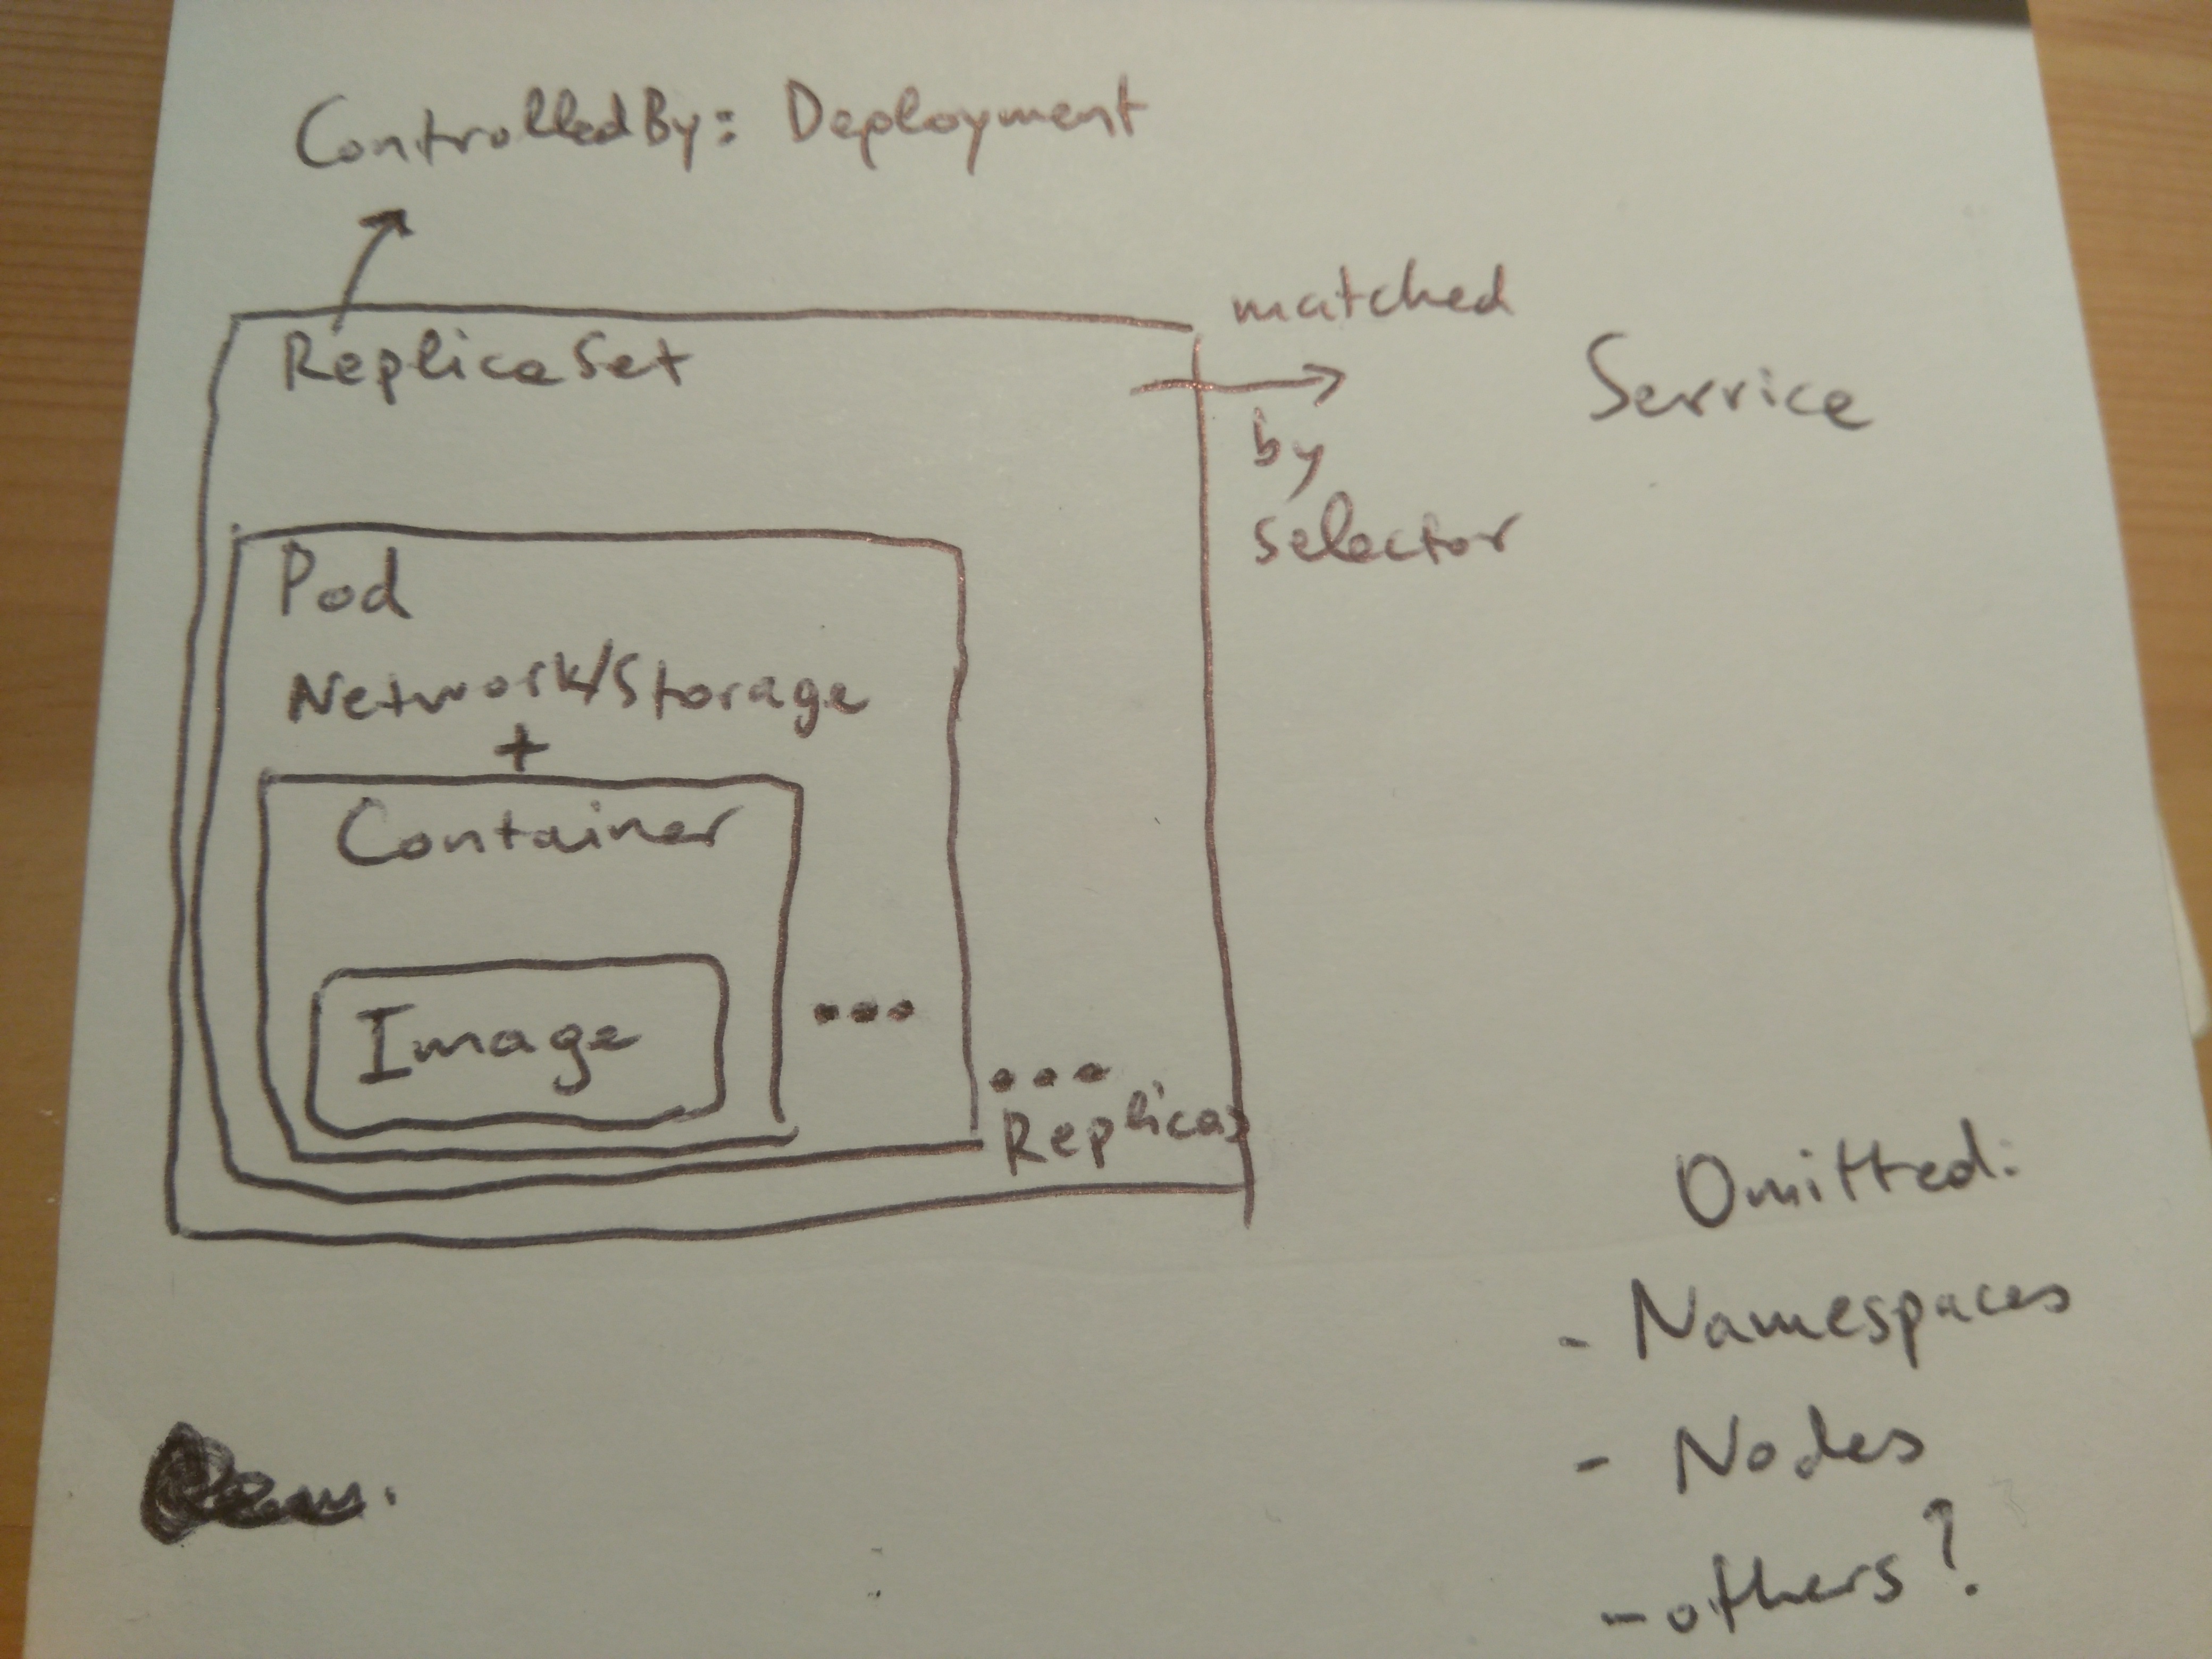 ControlledBy: Deployment
ReplicaSet
matched
by
selector
Service
Pod
Network/Storage
+
Container
Image
...
...
Replicas
Omitted:
- Namespaces
- Nodes
- others?